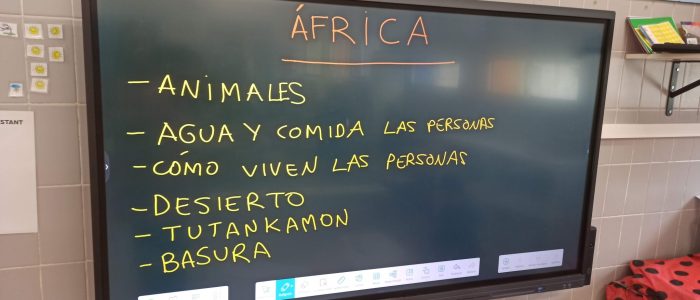 ÁFRICA
- ANIMALES
- AGUA Y COMIDA LAS PERSONAS
- CÓMO VIVEN LAS PERSONAS
- DESIERTO
- TUTANKAMON
- BASURA
STANT